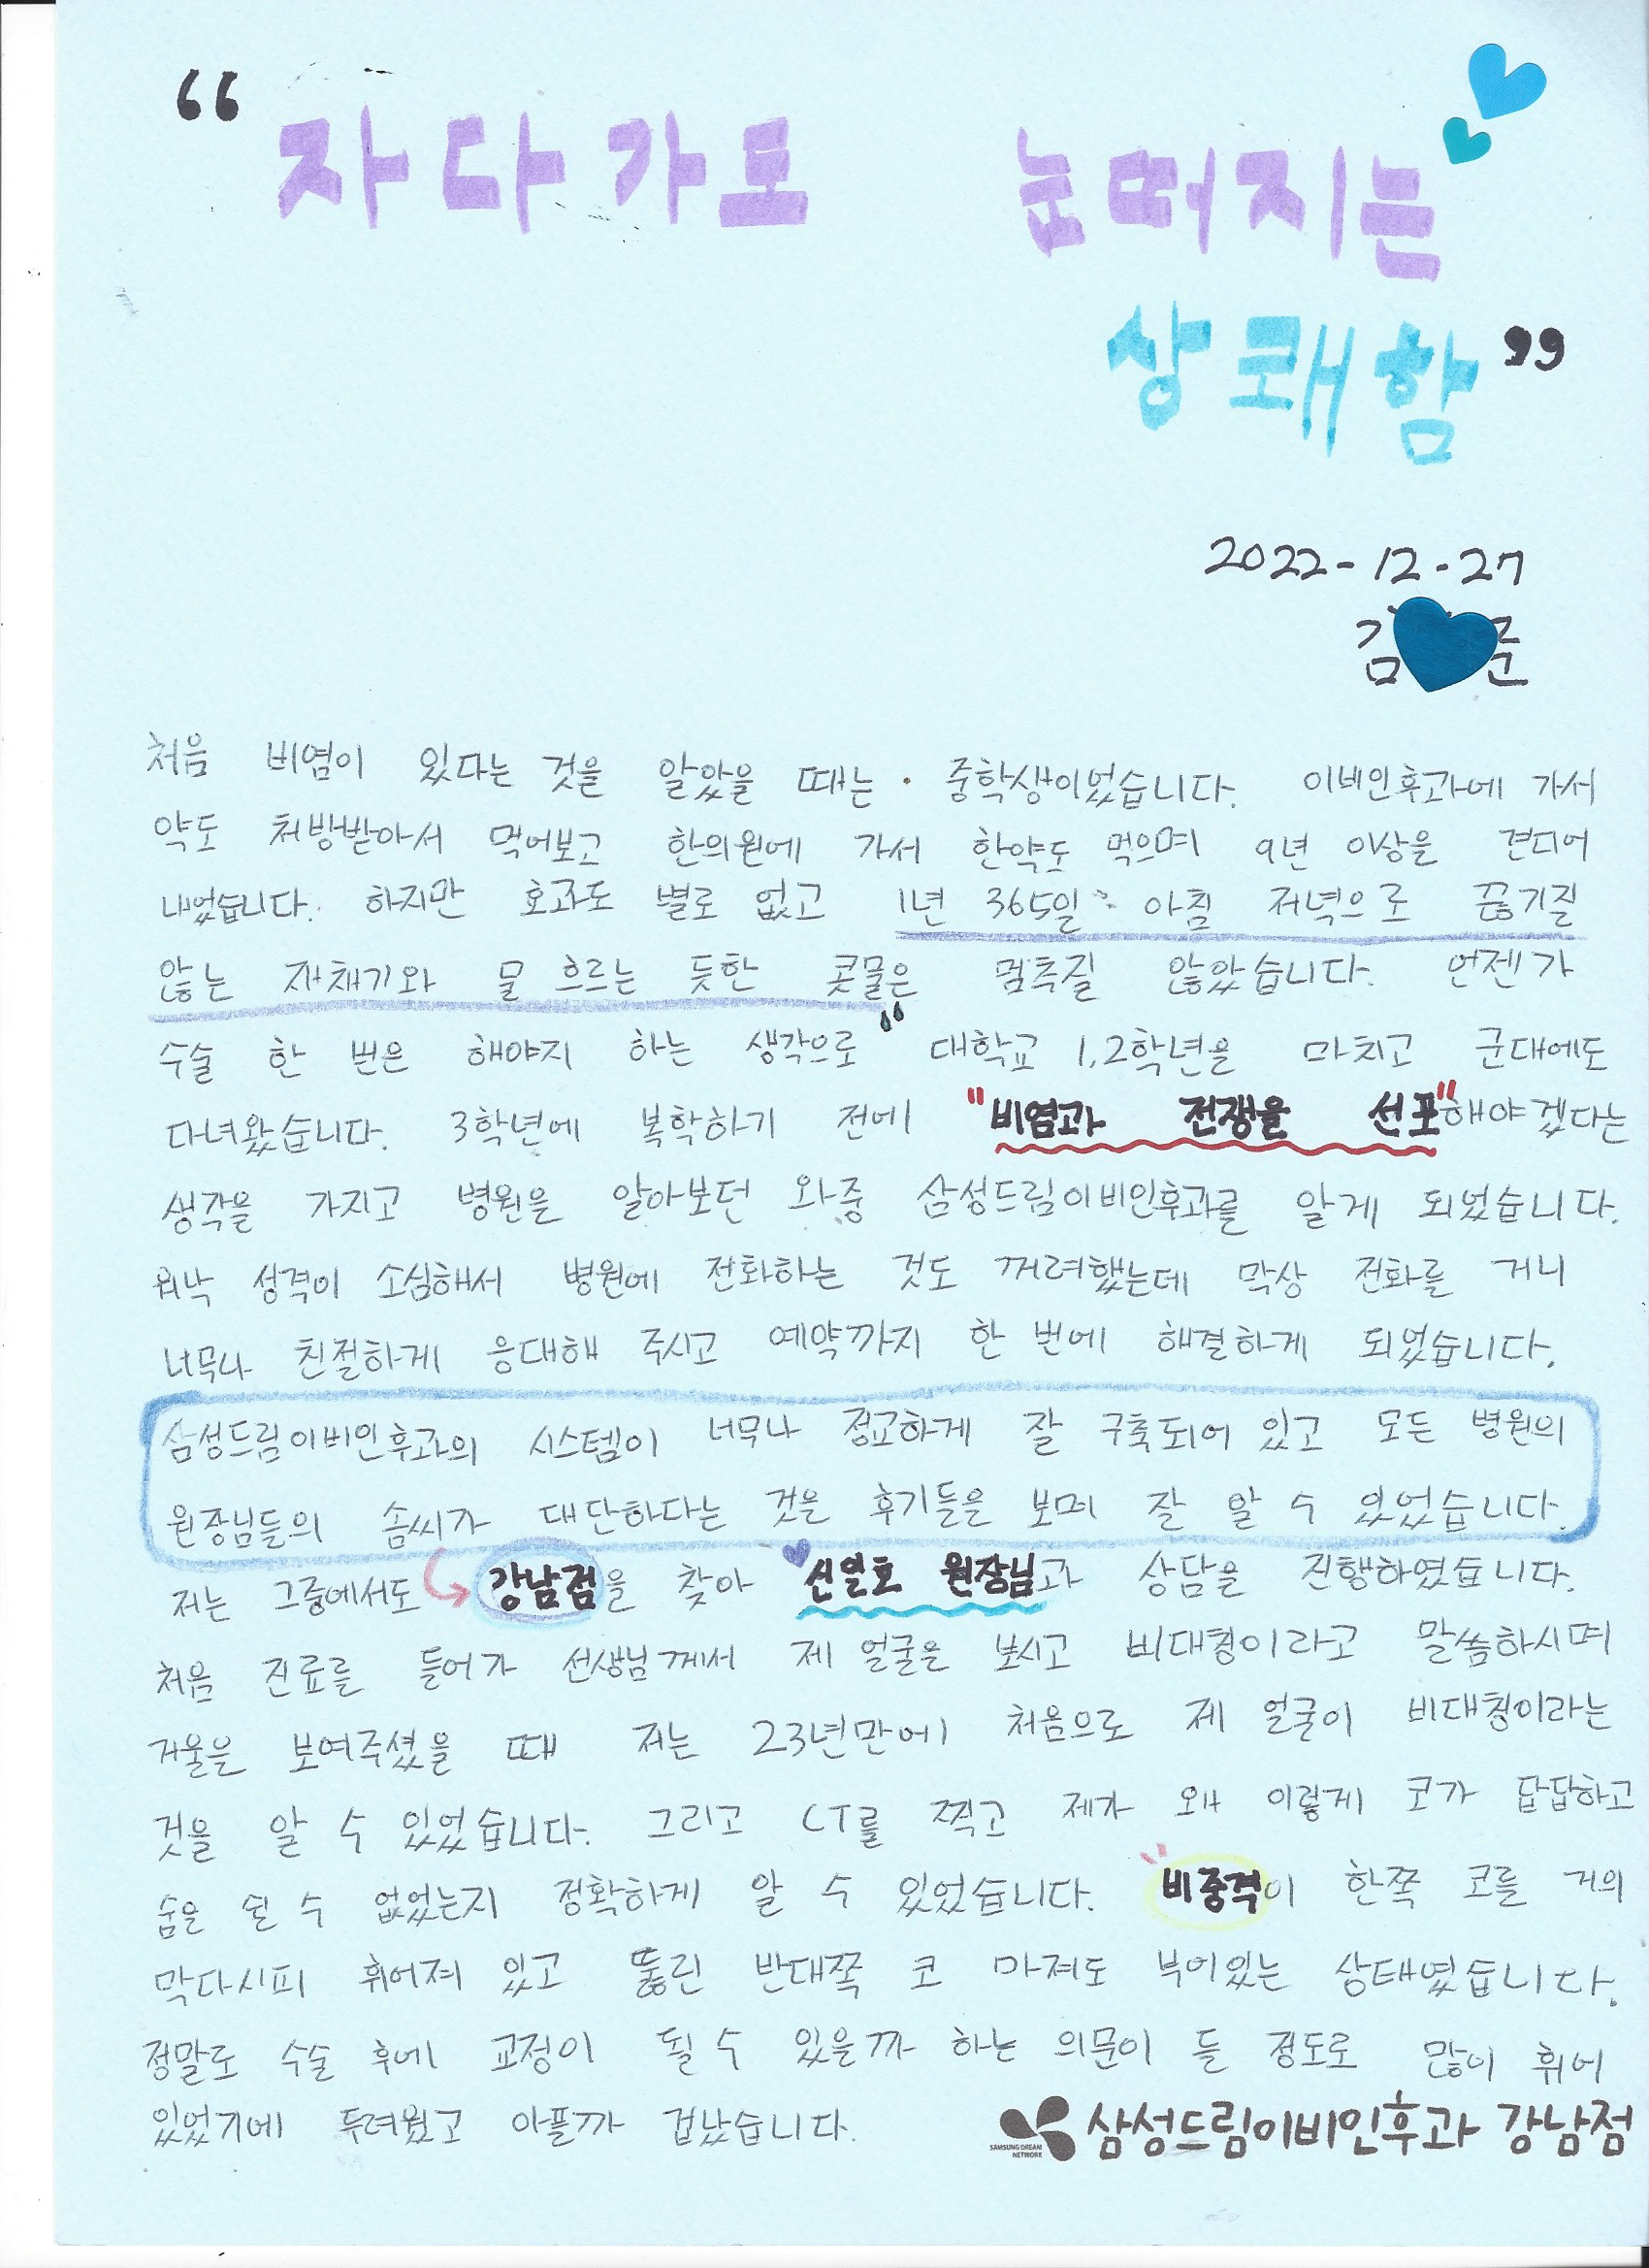 “ 자다가도 눈떠지는
상쾌함 ”
2022-12-27
김 준
처음 비염이 있다는 것을 알았을 때는 중학생이었습니다. 이비인후과에 가서
약도 처방받아서 먹어보고 한의원에 가서 한약도 먹으며 9년 이상을 견디어
내었습니다. 하지만 효과도 별로 없고 1년 365일 아침 저녁으로 끊기질
않는 재채기와 물 흐르는 듯한 콧물은 멈추질 않았습니다. 언젠가
수술 한 번은 해야지 하는 생각으로 대학교 1,2학년을 마치고 군대에도
다녀왔습니다. 3학년에 복학하기 전에 "비염과 전쟁을 선포"해야겠다는
생각을 가지고 병원을 알아보던 와중 삼성드림이비인후과를 알게 되었습니다.
워낙 성격이 소심해서 병원에 전화하는 것도 꺼려했는데 막상 전화를 거니
너무나 친절하게 응대해 주시고 예약까지 한 번에 해결하게 되었습니다.
삼성드림이비인후과의 시스템이 너무나 정교하게 잘 구축되어 있고 모든 병원의
원장님들의 솜씨가 대단하다는 것을 후기들을 보며 잘 알 수 있었습니다.
저는 그중에서도 강남점을 찾아 신일호 원장님과 상담을 진행하였습니다.
처음 진료를 들어가 선생님께서 제 얼굴을 보시고 비대칭이라고 말씀하시며
거울을 보여주셨을 때 저는 23년만에 처음으로 제 얼굴이 비대칭이라는
것을 알 수 있었습니다. 그리고 CT를 찍고 제가 왜 이렇게 코가 답답하고
숨을 쉴 수 없었는지 정확하게 알 수 있었습니다. 비중격이 한쪽 코를 거의
막다시피 휘어져 있고 뚫린 반대쪽 코 마저도 부어있는 상태였습니다.
정말로 수술 후에 교정이 될 수 있을까 하는 의문이 들 정도로 많이 휘어
있었기에 두려웠고 아플까 겁났습니다.
SAMSUNG DREAM
NETWORK
삼성드림이비인후과 강남점